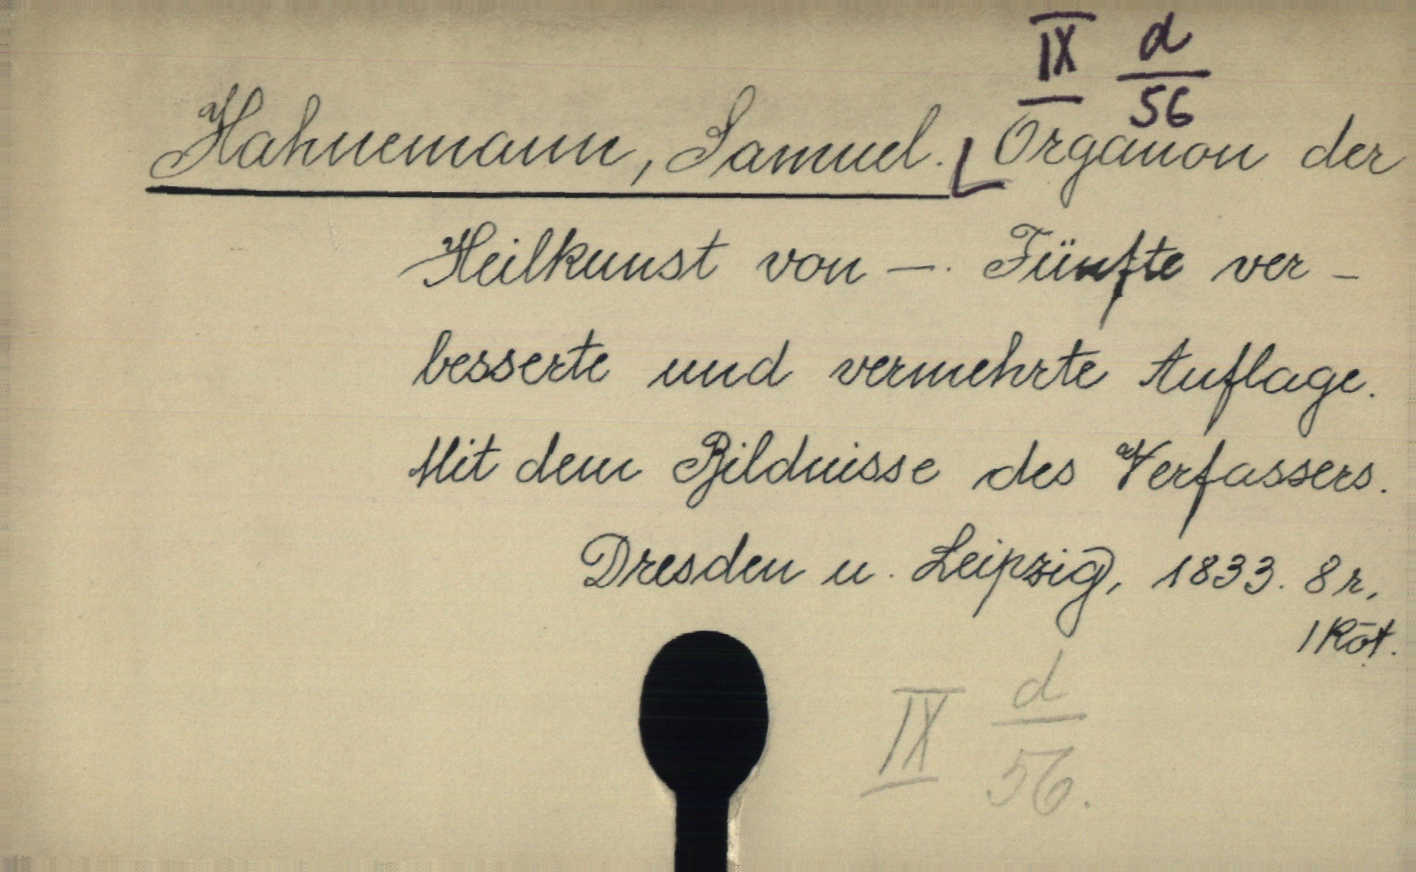 IX d/56
Hahnemann, Samuel. Organon der
Heilkunst von —. Fünfte ver-
besserte und vermehrte Auflage.
Mit dem Bildnisse des Verfassers.
Dresden u. Leipzig, 1833. 8r,
1 Köt.
IX d/56.